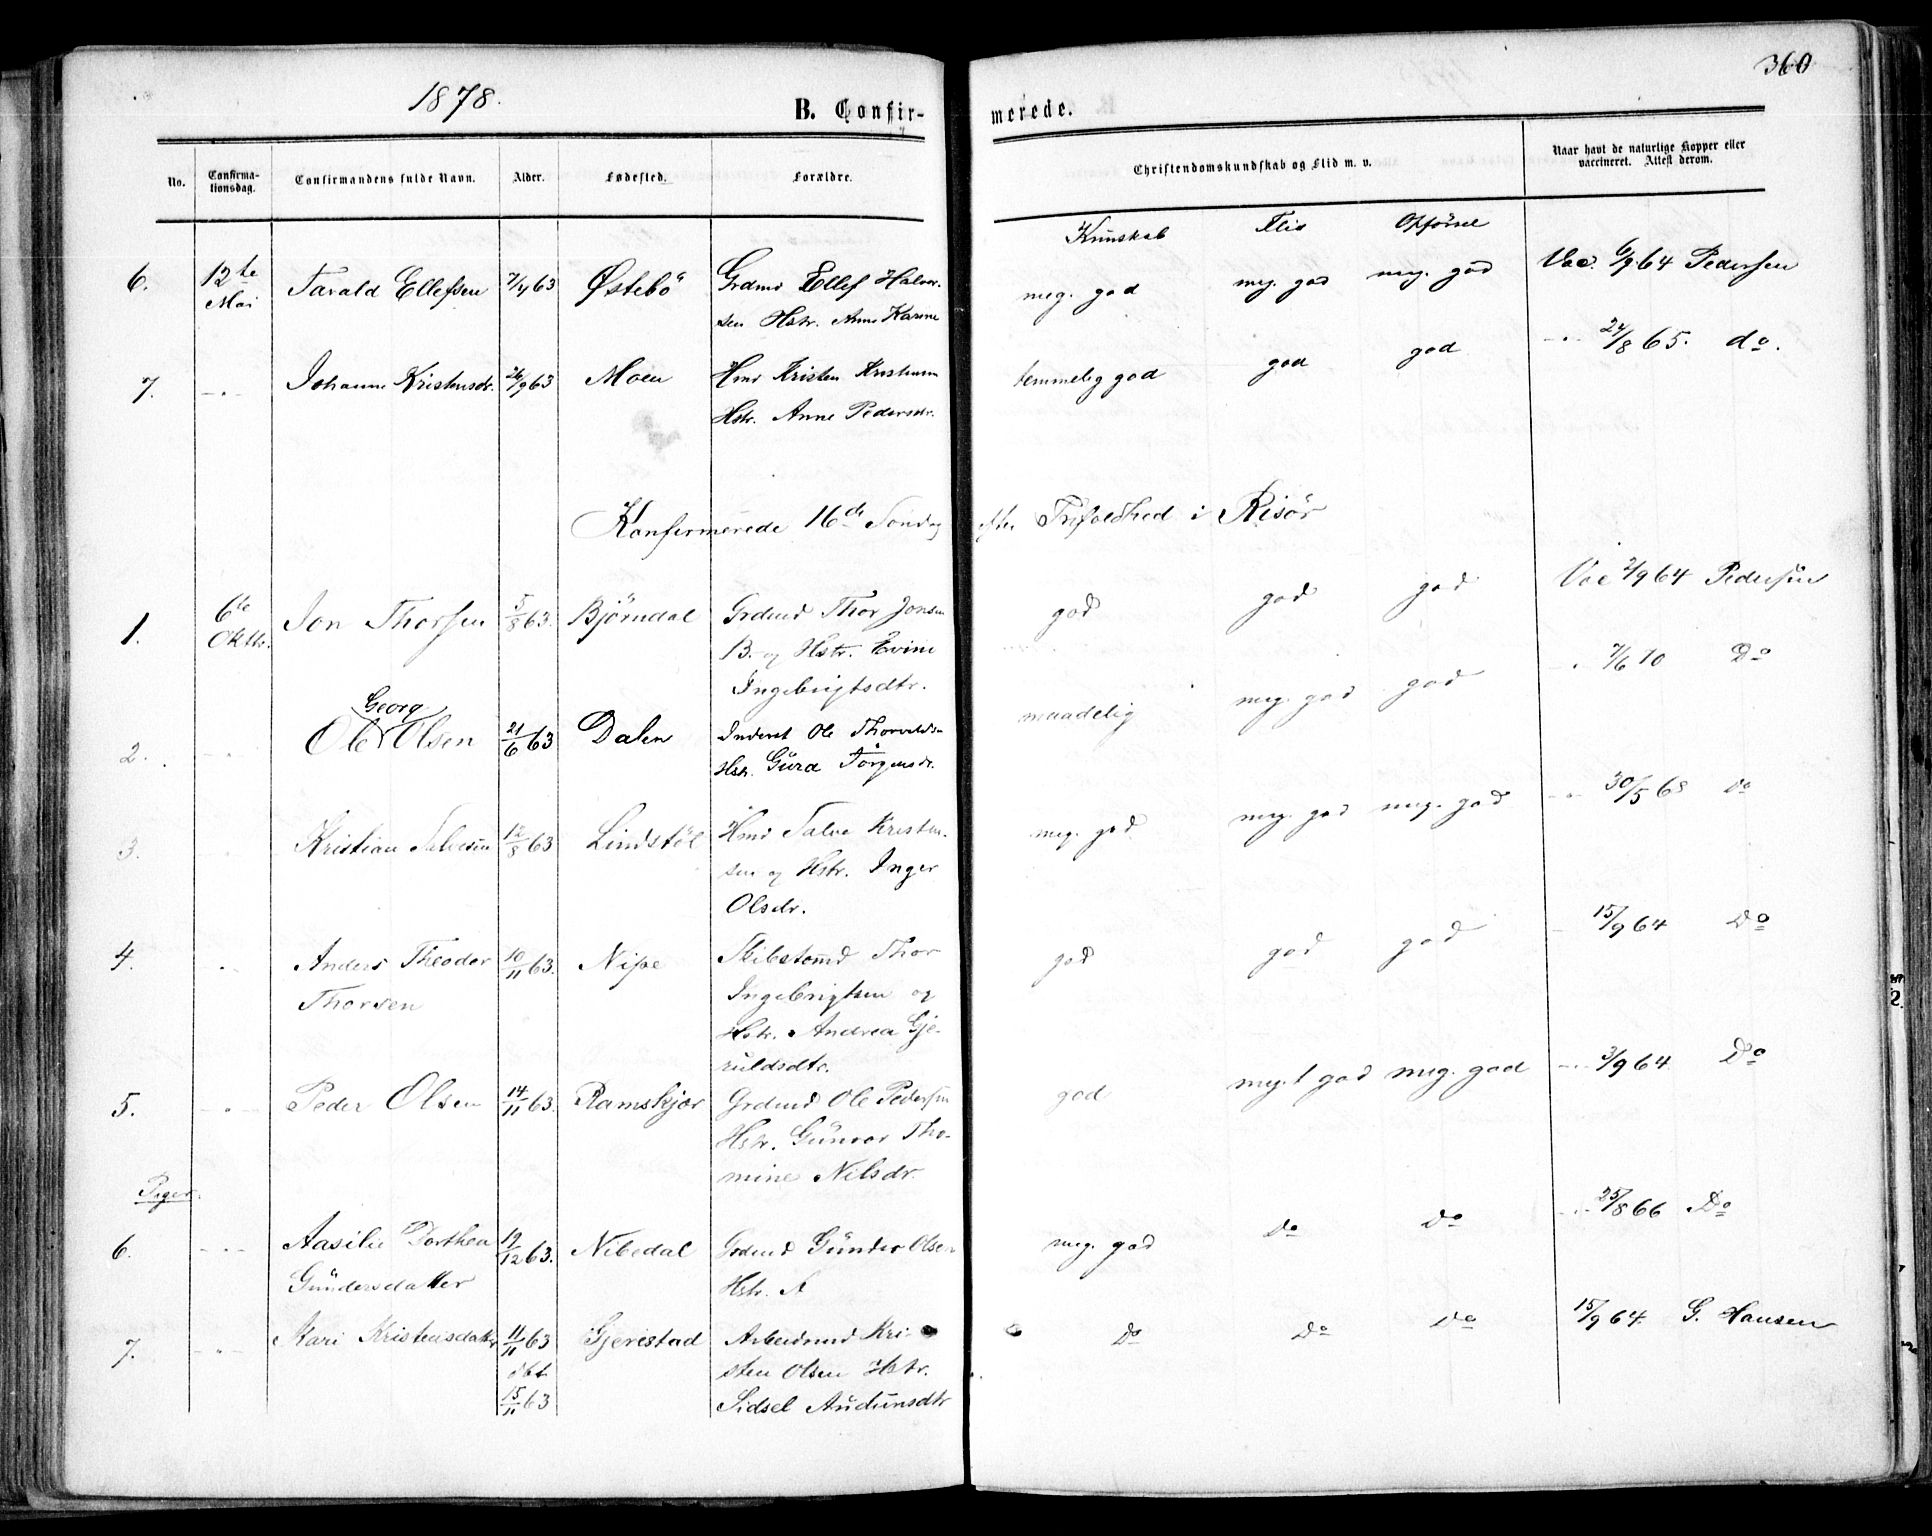 360
1878.
B. Confir- merede.
No. Confirma-tionsdag. Confirmandens fulde Navn. Alder. Fødested. Forældre. Christendomskundskab og Flid m. v. Naar havt de naturlige Kopper eller vaccineret. Attest derom.
Kunskab Flid Opførsel
6. 12te Tarald Ellefsen 7/4 63 Østebö Grdmd Ellef Halvor- meg. god meg. god meg. god Vac. 6/9 64 Pedersen
Mai sen Hstr. Anne Karine
7. -"- Johanne Kristensdr. 26/9 63 Moen Hmd Kristen Kristensen temmelig god god god -"- 24/8 65. do.
Hstr. Anne Pedersdr.
Konfirmerede 16de Søndag efter Trefoldhed i Risör
1. 6te Jon Thorsen 5/8 63. Björndal Grdmd Thor Jonsen god god god Vac 2/9 64 Pedersen
Oktbr. B. og Hstr. Evine
Ingebrigtsdtr.
Georg
2. " Ole Olsen 21/6 63 Dalen Inderst Ole Thorvalds. maadelig meg. god god -"- 7/6 70 Do
Hstr. Gúro Törgensdr.
3. " Kristian Salvesen 12/8 63 Lindstöl Hmd Salve Kristen- meg. god. meg. god meg. god -"- 30/5 68 do
sen og Hstr. Inger
Olsdr.
4. " Anders Theodor 10/11 63. Nipe Skibstømd Thor god god god - 15/9 64 Do
Thorsen Ingebrigtsen og
Hstr. Andrea Gje-
ruldsdtr.
5. -"- Peder Olsen 14/11 63. Ramskjær Grdmd Ole Pedersen god meg. god meg. god -"- 3/9 64. Do
Hstr. Gúnvor Tho-
mine Nilsdr.
Piger.
6. -"- Aasilie Dorthea 19/12 63. Nibedal Grdmd Gúnder Olsen meg. god do do -"- 25/8 66 Do
Gúndersdatter Hstr. A
7. -"- Kari Kristensdatter 11/11 63 Gjerestad Arbeidsmd Kri- Do Do Do 15/9 64. G. Hansen
dbt sten Olsen Hstr.
15/11 63 Sidsel Aúdúnsdtr